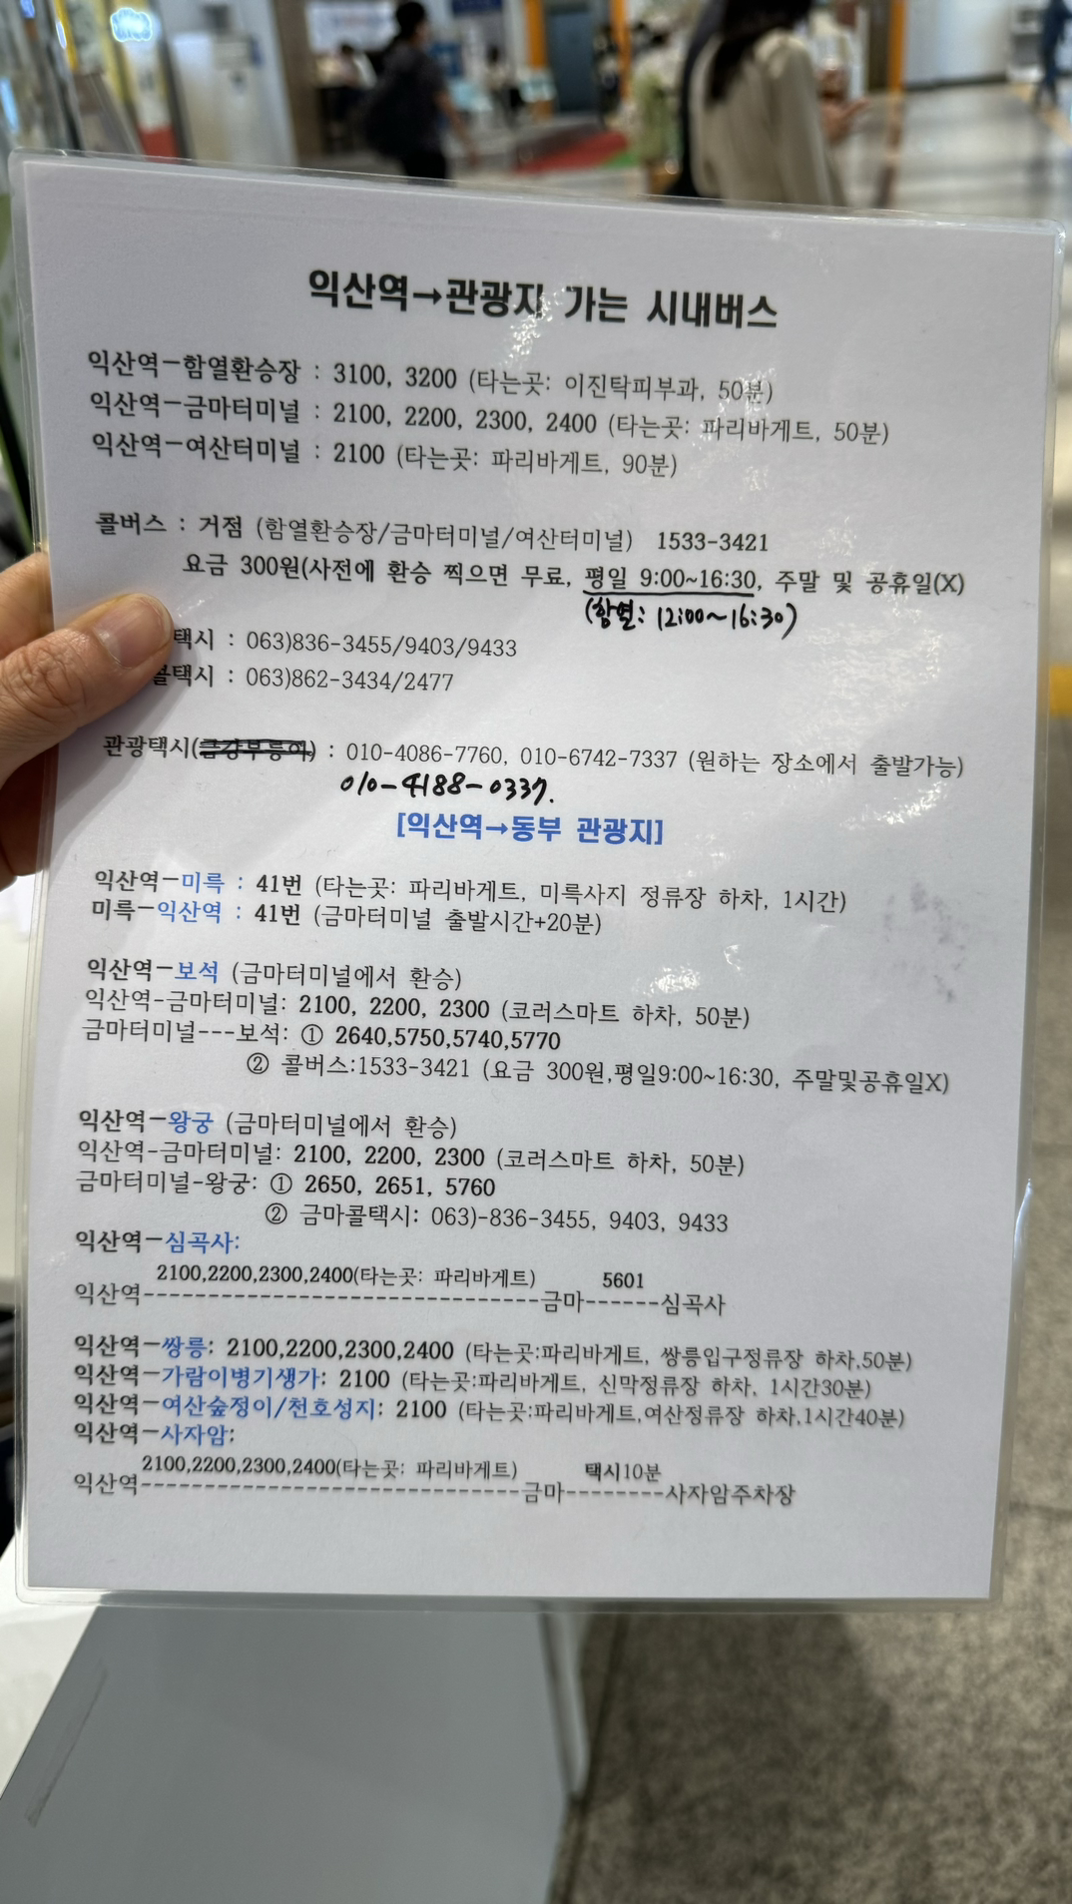 익산역→관광지 가는 시내버스
익산역-함열환승장 : 3100, 3200 (타는곳: 이진탁피부과, 50분)
익산역-금마터미널 : 2100, 2200, 2300, 2400 (타는곳: 파리바게트, 50분)
익산역-여산터미널 : 2100 (타는곳: 파리바게트, 90분)
콜버스 : 거점 (함열환승장/금마터미널/여산터미널) 1533-3421
요금 300원(사전에 환승 찍으면 무료, 평일 9:00~16:30, 주말 및 공휴일(X)
(함열: 12:00~16:30)
택시 : 063)836-3455/9403/9433
콜택시 : 063)862-3434/2477
관광택시( ) : 010-4086-7760, 010-6742-7337 (원하는 장소에서 출발가능)
010-4188-0337.
[익산역→동부 관광지]
익산역-미륵 : 41번 (타는곳: 파리바게트, 미륵사지 정류장 하차, 1시간)
미륵-익산역 : 41번 (금마터미널 출발시간+20분)
익산역-보석 (금마터미널에서 환승)
익산역-금마터미널: 2100, 2200, 2300 (코러스마트 하차, 50분)
금마터미널---보석: ① 2640,5750,5740,5770
② 콜버스:1533-3421 (요금 300원,평일9:00~16:30, 주말및공휴일X)
익산역-왕궁 (금마터미널에서 환승)
익산역-금마터미널: 2100, 2200, 2300 (코러스마트 하차, 50분)
금마터미널-왕궁: ① 2650, 2651, 5760
② 금마콜택시: 063)-836-3455, 9403, 9433
익산역-심곡사:
2100,2200,2300,2400(타는곳: 파리바게트) 5601
익산역------------------------------금마------심곡사
익산역-쌍릉: 2100,2200,2300,2400 (타는곳:파리바게트, 쌍릉입구정류장 하차,50분)
익산역-가람이병기생가: 2100 (타는곳:파리바게트, 신막정류장 하차, 1시간30분)
익산역-여산숲정이/천호성지: 2100 (타는곳:파리바게트,여산정류장 하차,1시간40분)
익산역-사자암:
2100,2200,2300,2400(타는곳: 파리바게트) 택시10분
익산역-----------------------------금마--------사자암주차장